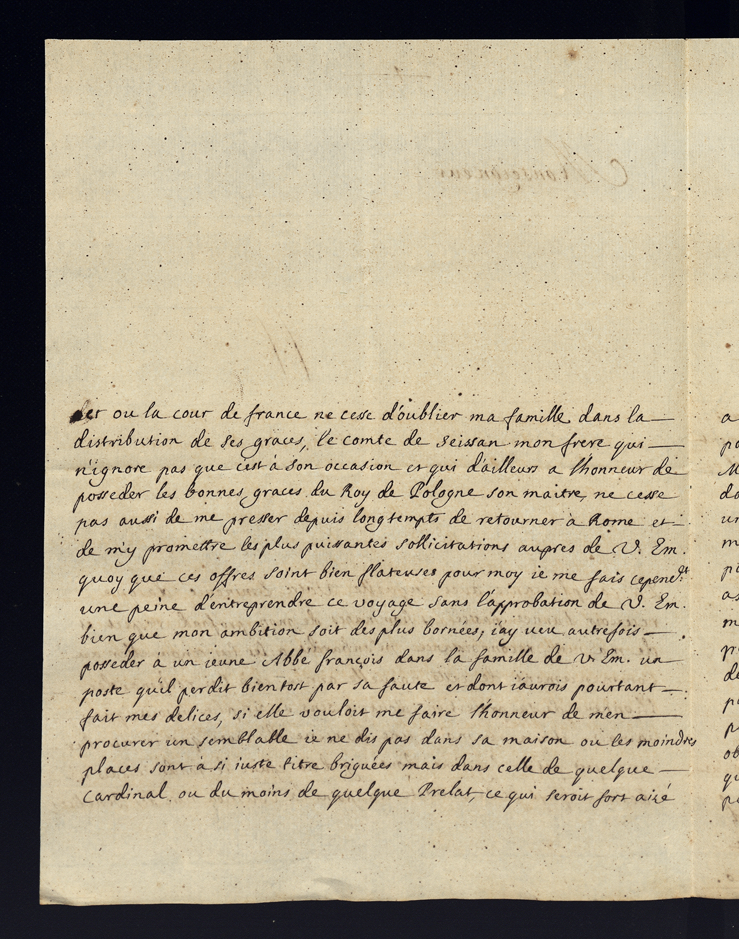 ou la cour de france ne cesse d'oublier ma famille dans la
distribution de ses graces, le comte de seissan mon frere qui
n'ignore pas que c'est à son occasion et qui d'ailleurs a l'honneur de
posseder les bonnes graces du Roy de Pologne son maitre, ne cesse
pas aussi de me presser depuis longtempts de retourner à Rome et
de m'y promettre les plus puissantes sollicitations aupres de V. Em.
quoy que ces offres soint bien flateuses pour moy ie me fais cepend.t
une peine d'entreprendre ce voyage sans l'approbation de V. Em.
bien que mon ambition soit des plus bornées, i'ay veu autrefois
posseder à un ieune Abbé françois dans la famille de V. Em. un
poste qu'il perdit bientost par sa faute et dont iaurois pourtant
fait mes delices, si elle vouloit me faire l'honneur de m'en
procurer un semblable ie ne dis pas dans sa maison ou les moindres
places sont à si iuste titre briguées mais dans celle de quelque
Cardinal ou du moins de quelque Prelat, ce qui seroit fort aizé